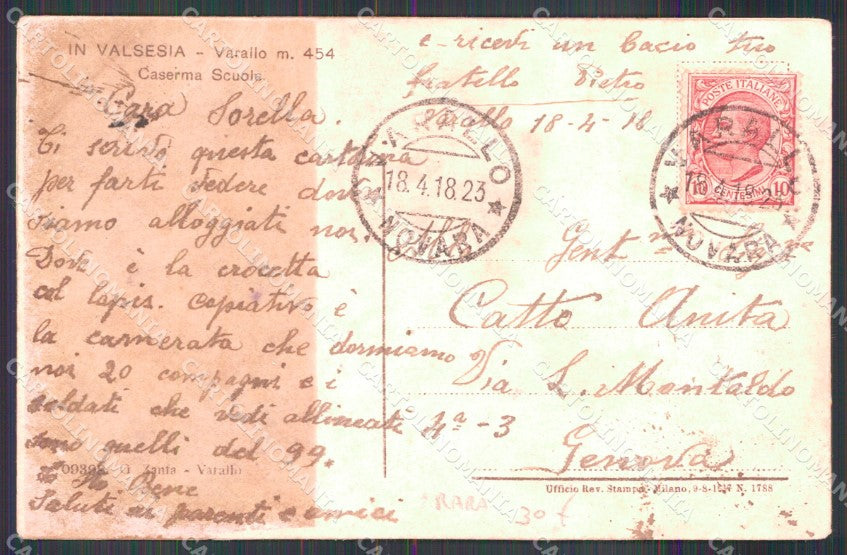 IN VALSESIA - Varallo m. 454
Caserma Scuola
Cara Sorella.
Ti scrivo questa cartolina
per farti vedere dove
siamo alloggiati noi.
Dove è la crocetta
col lapis. copiativo è
la camerata che dormiamo
noi 20 compagni e i
soldati che vedi allineati
sono quelli del 99.
Sto Bene
Saluti ai parenti e amici
e ricevi un bacio tuo
fratello Pietro
Varallo 18-4-18
VARALLO
18.4.18.23
NOVARA
POSTE ITALIANE
10 CENTESIMI 10
VARALLO
18.4.18.23
NOVARA
Gent
Catto Anita
Via L. Montaldo
4ª-3
Genova
Zanfa - Varallo
Ufficio Rev. Stampa - Milano, 9-8-1917 N. 1788
RARA
30 €
CARTOLINOMANIA